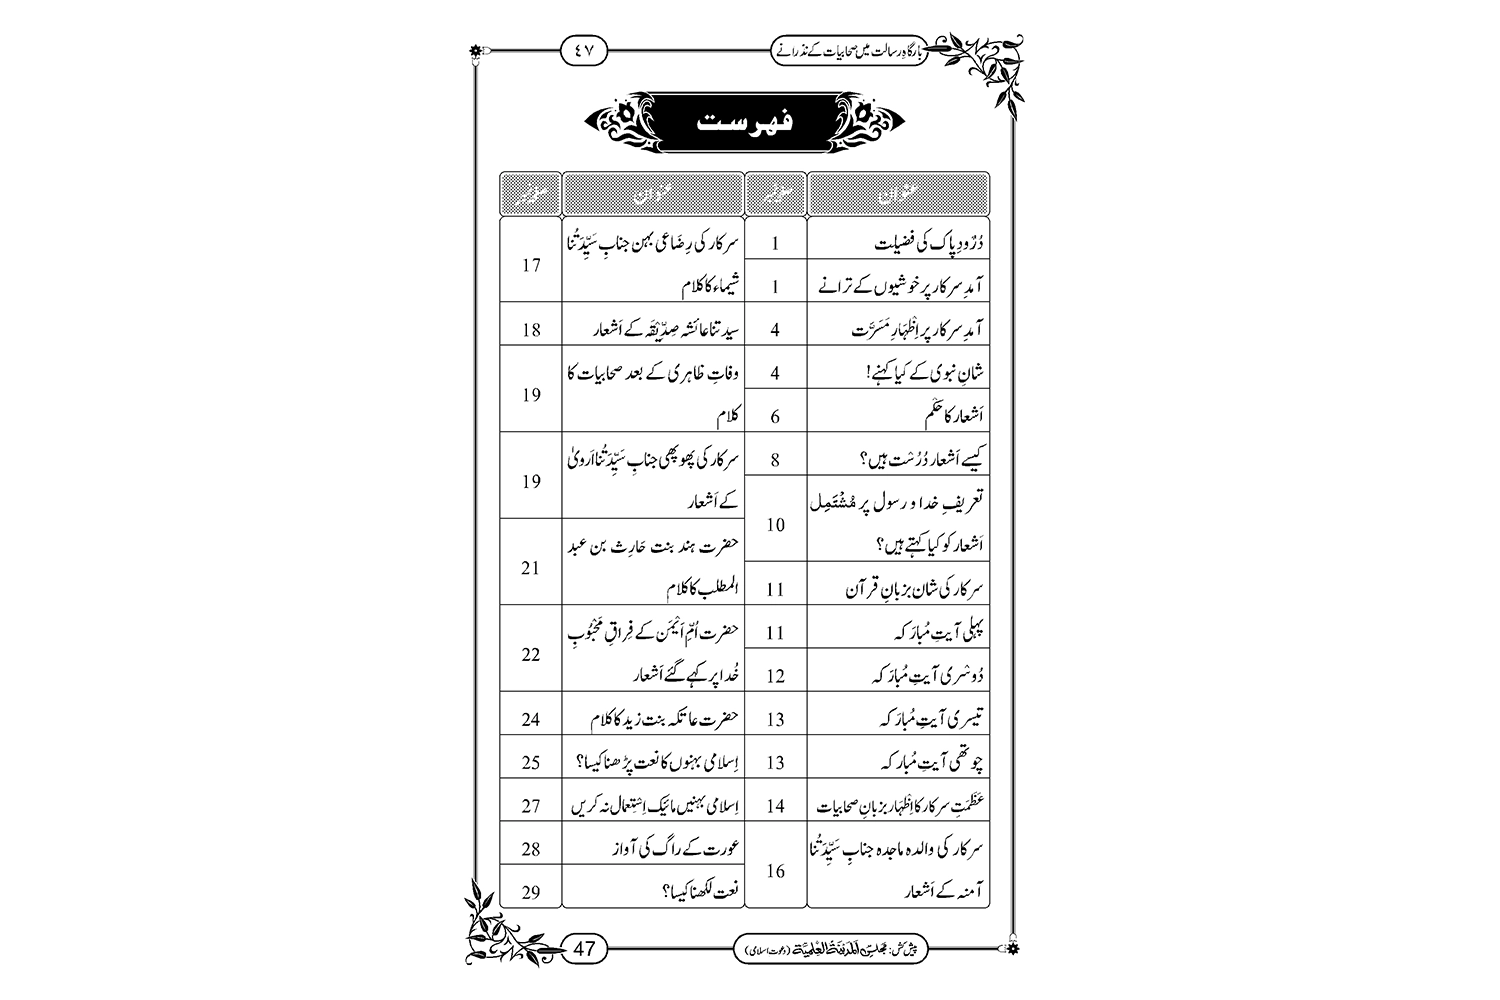 بارگاہِ رسالت میں صحابیات کے نذرانے
٤٧
فہرست
عنوان صفحہ نمبر عنوان صفحہ نمبر
دُرُودِ پاک کی فضیلت 1
آمدِ سرکار پر خوشیوں کے ترانے 1
آمدِ سرکار پر اِظْہَارِ مَسَرَّت 4
شانِ نبوی کے کیا کہنے! 4
اَشعار کا حَکَم 6
کیسے اَشعار دُرُست ہیں؟ 8
تعریفِ خدا و رسول پر مُشْتَمِل
اَشعار کو کیا کہتے ہیں؟ 10
سرکار کی شان بزبانِ قرآن 11
پہلی آیتِ مُبارَکہ 11
دُوسْری آیتِ مُبارَکہ 12
تیسری آیتِ مُبارَکہ 13
چوتھی آیتِ مُبارکہ 13
عَظَمَتِ سرکار کا اِظْہَار بزبانِ صحابیات 14
سرکار کی والدہ ماجدہ جنابِ سَیِّدَتُنا
آمنہ کے اَشعار 16
سرکار کی رِضَاعی بہن جنابِ سَیِّدَتُنا
شیماء کا کلام 17
سیدتنا عائشہ صِدِّیْقَہ کے اَشعار 18
وفاتِ ظاہری کے بعد صحابیات کا
کلام 19
سرکار کی پھوپھی جنابِ سَیِّدَتُنا اَرویٰ
کے اَشعار 19
حضرت ہند بنت حَارِث بن عبد
المطلب کا کلام 21
حضرت اُمِّ اَیْمَن کے فِراقِ مَحْبُوبِ
خُدا پر کہے گئے اَشعار 22
حضرت عاتکہ بنت زید کا کلام 24
اِسلامی بہنوں کا نعت پڑھنا کیسا؟ 25
اِسلامی بہنیں مائیک اِسْتِعمال نہ کریں 27
عورت کے راگ کی آواز 28
نعت لکھنا کیسا؟ 29
پیش کش: مجلس اَلْمَدِیْنَۃُ الْعِلْمِیَّۃ (دعوتِ اسلامی)
47